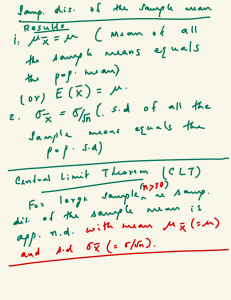 Samp. dis. of the sample mean
Results
1. μx̄ = μ ( Mean of all
the sample means equals
the pop. mean)
(or) E(x̄) = μ.
2. σx̄ = σ/√n (. s.d of all the
Sample means equals the
pop. s.d)
Central Limit Theorem (CLT)
(n>30)
For large sample, samp.
dis. of the sample mean is
app. n.d. with mean μx̄ (=μ)
and s.d σx̄ (= σ/√n).